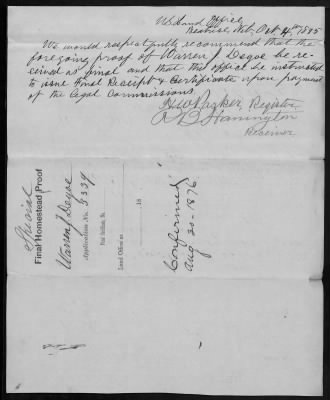 U.S. Land Office
Beatrice, Neb, Oct 4th 1875
We would respectfully recommend that the
foregoing proof of Warren J. Degoe be re-
ceived as final and that this office be instructed
to issue final Receipt & Certificate upon payment
of the legal Commissions.
H W Parker Register
Harrington
Receiver
Special
Final Homestead Proof
Warren J Degoe
Application No. 5339
Land Office at
18
Confirmed
Aug 30-1876